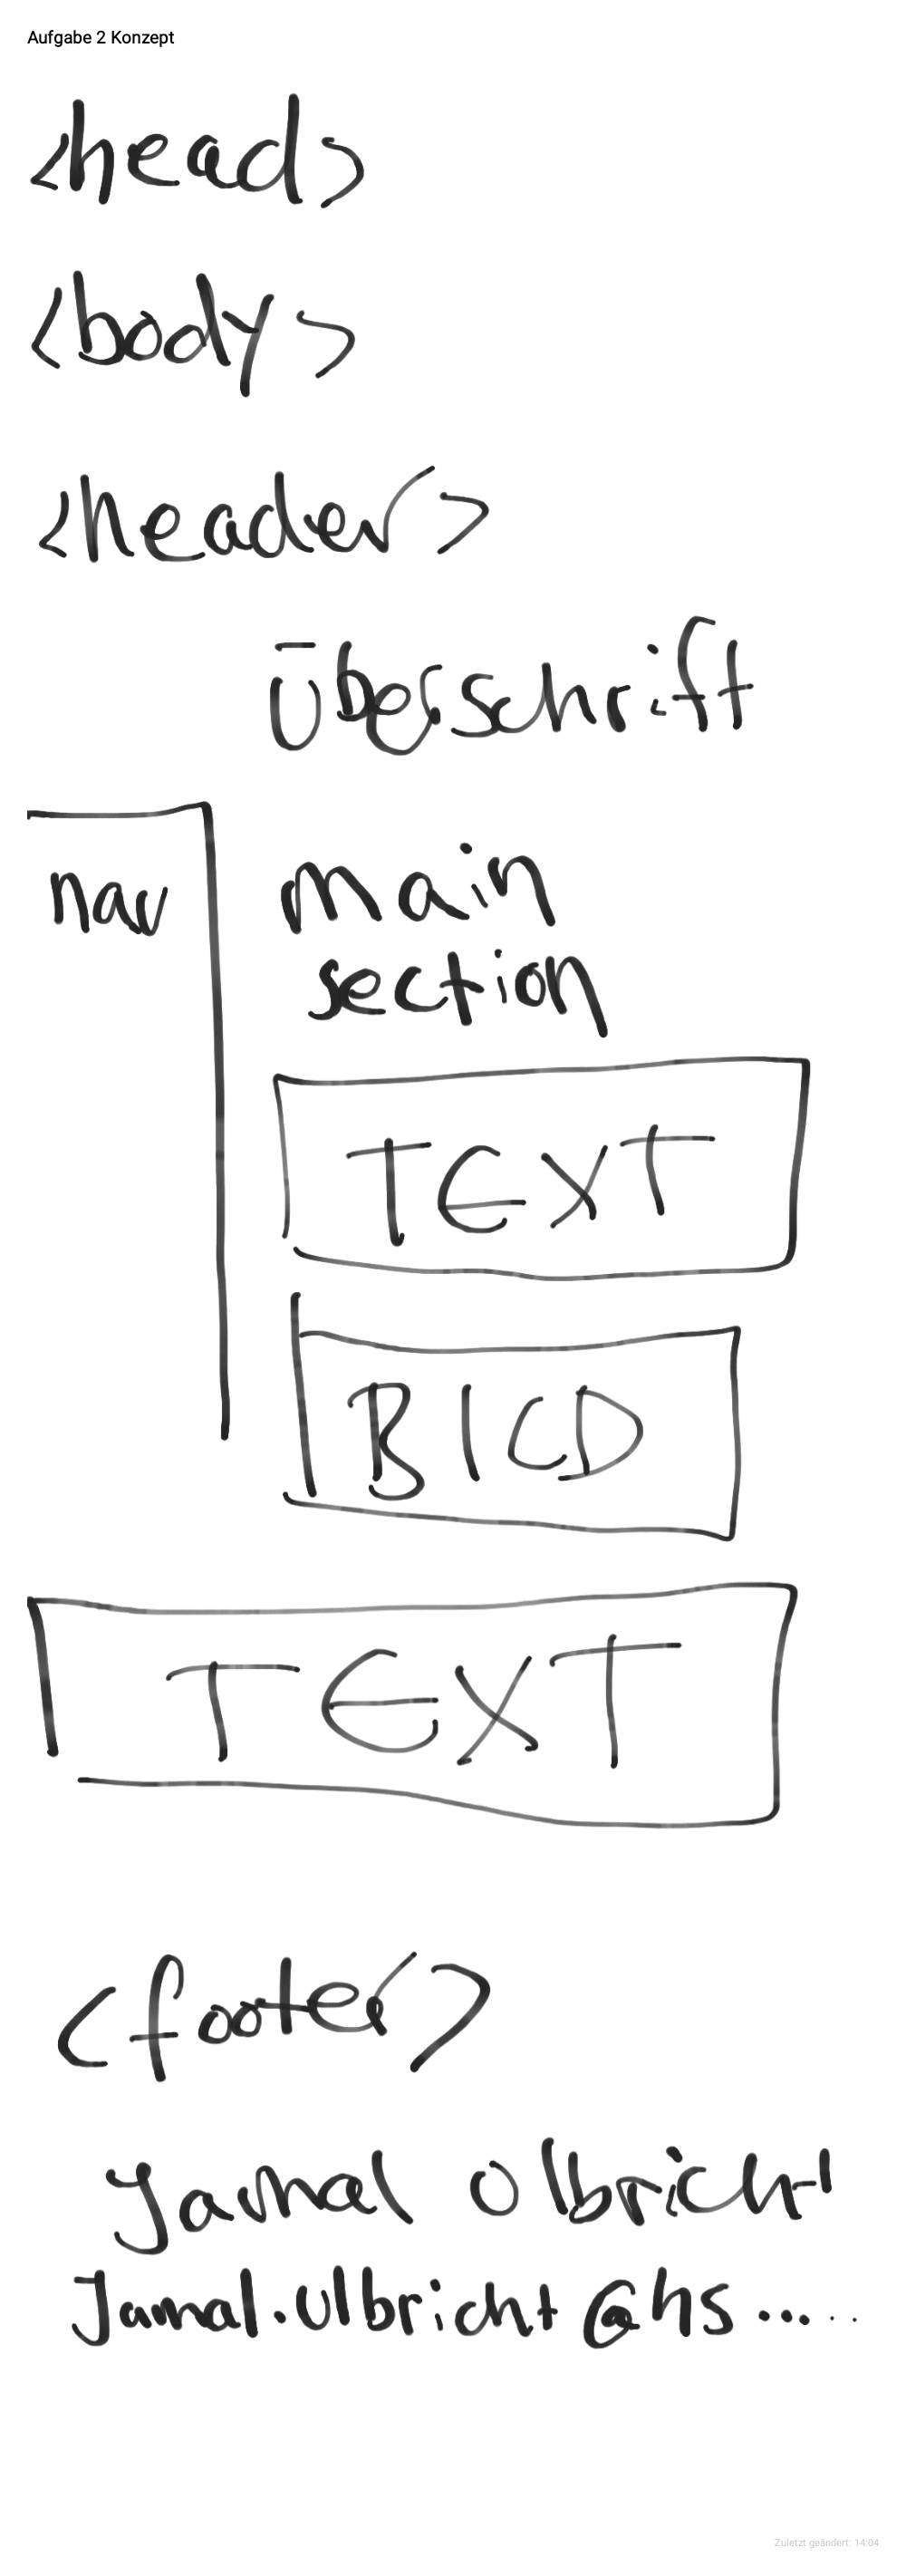 Aufgabe 2 Konzept
<head>
<body>
<header>
Überschrift
nav
main
section
TEXT
BILD
TEXT
<footer>
Jamal Ulbricht
Jamal.Ulbricht@hs.....
Zuletzt geändert: 14:04